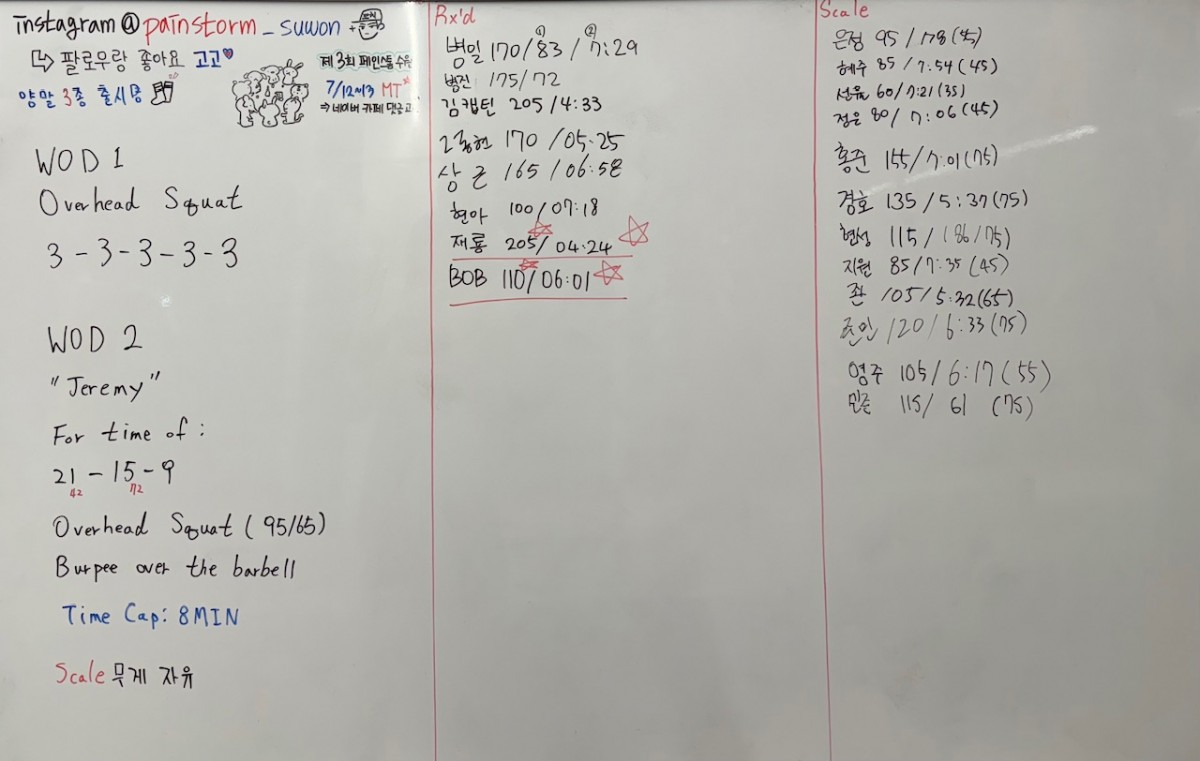 instagram@painstorm_suwon
↳ 팔로우랑 좋아요 고고♥
양말 3종 출시중
제 3회 페인스톰 수원
7/12~13 MT
⇒ 네이버 카페 댓글고
WOD 1
Overhead Squat
3-3-3-3-3
WOD 2
"Jeremy"
For time of :
21-15-9
42 72
Overhead Squat (95/65)
Burpee over the barbell
Time Cap: 8MIN
Scale 무게 자유
Rx'd
① ②
병일 170/83/7:29
병진 175/72
김캡틴 205/4:33
2종현 170/05:25
상근 165/06:58
현아 100/07:18
재룡 205/04:24
BOB 110/06:01
Scale
은정 95/78(45)
혜주 85/7:54(45)
60/7:21(35)
정은 80/7:06(45)
홍준 155/7:01(75)
경호 135/5:37(75)
현성 115/ /75)
지원 85/7:35(45)
105/5:32(65)
120/6:33(75)
영주 105/6:17(55)
민준 115/61 (75)